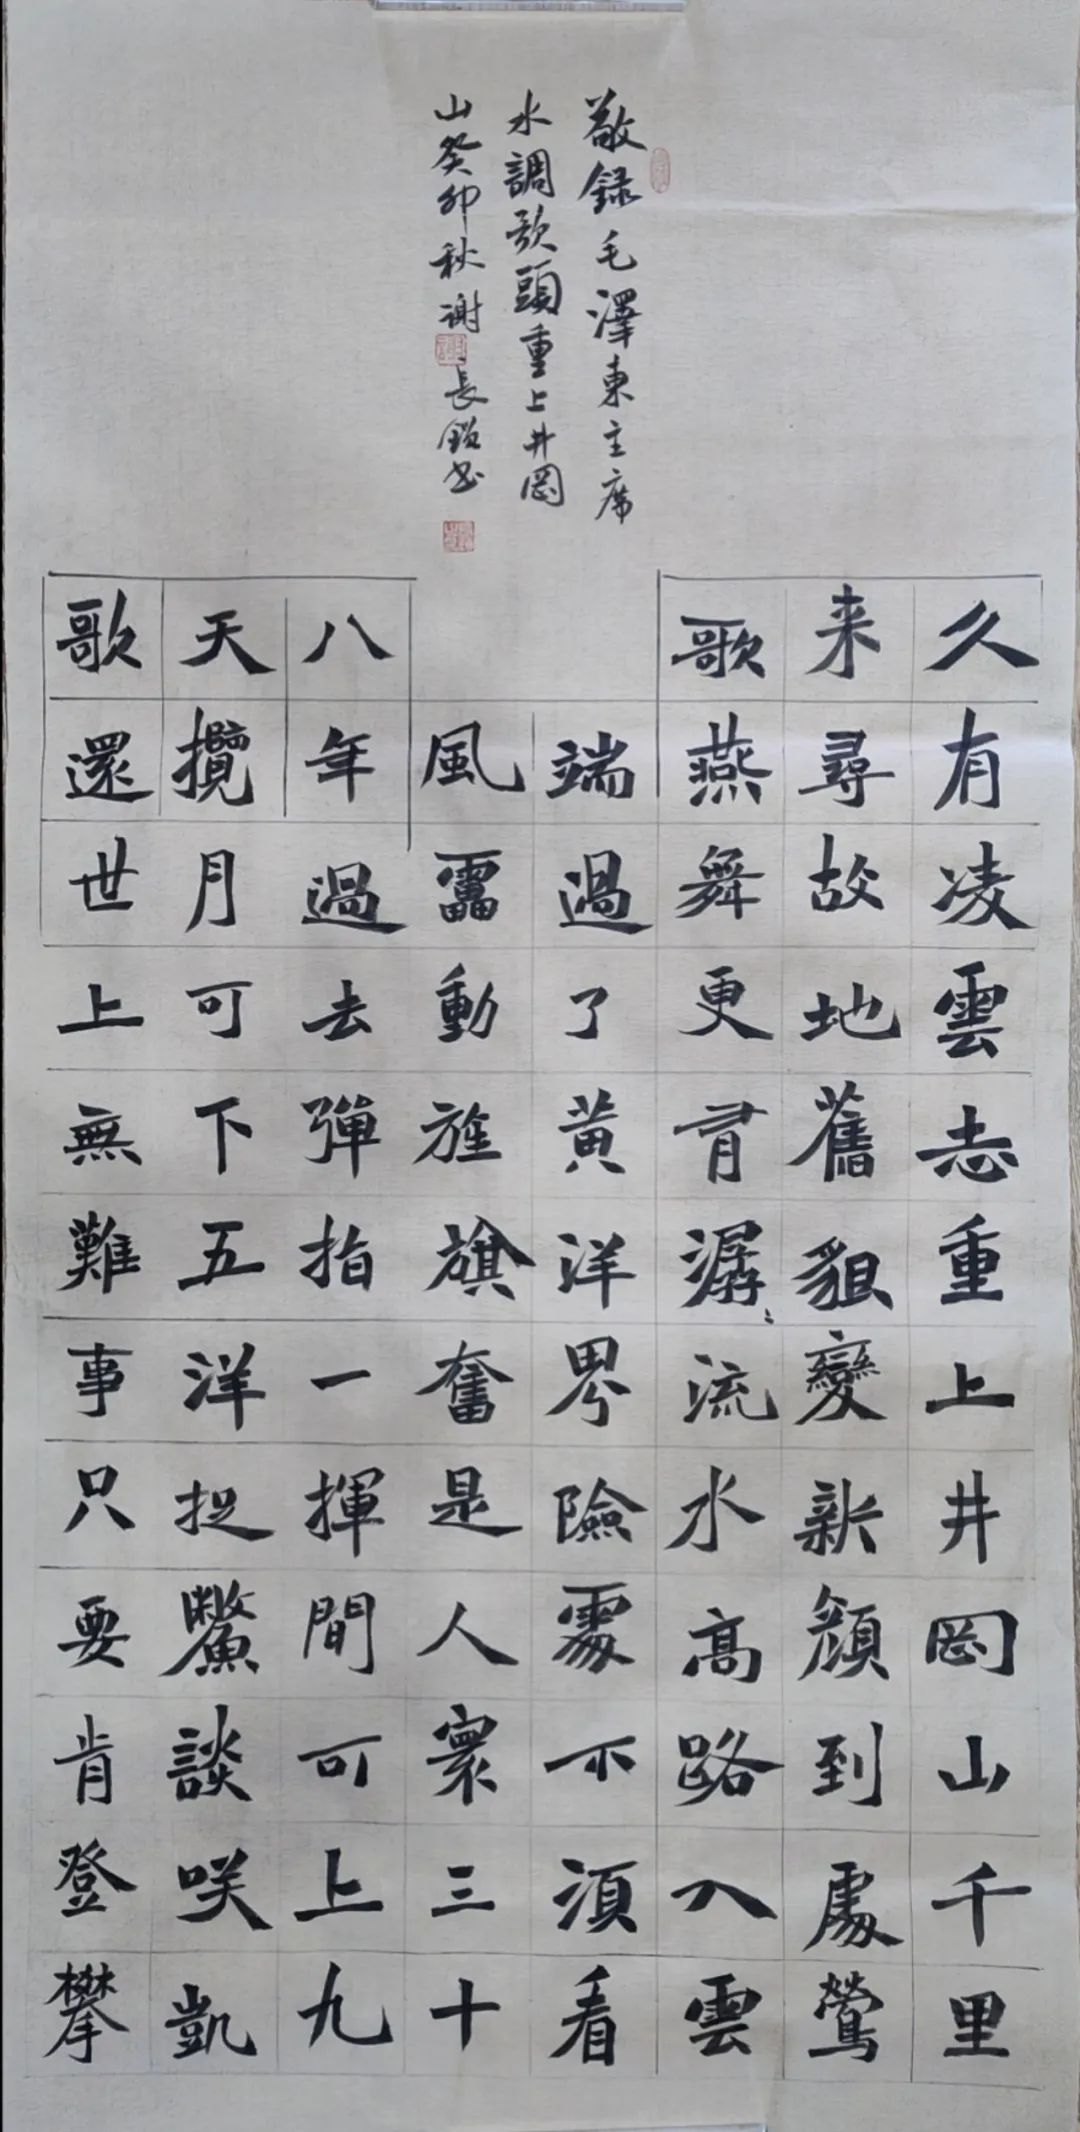 敬録毛澤東主席
水調歌頭重上井岡
山癸卯秋謝長鎖書
久有凌雲志重上井岡山千里
来尋故地舊貌變新顔到處鶯
歌燕舞更有潺〻流水高路入雲
端過了黄洋界險處不須看
風雷動旌旗奮是人寰三十
八年過去彈指一揮間可上九
天攬月可下五洋捉鱉談咲凱
歌還世上無難事只要肯登攀